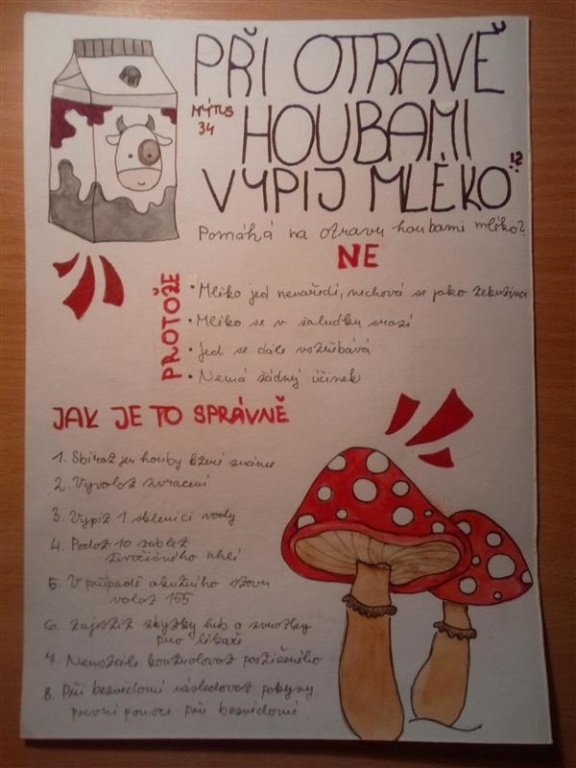 PŘI OTRAVĚ
MÝTUS
34
HOUBAMI
VYPIJ MLÉKO
!?
Pomáhá na otravu houbami mléko?
NE
PROTOŽE
• Mléko jed nenaředí, nechová se jako tekutina
• Mléko se v žaludku srazí
• Jed se dále vstřebává
• Nemá žádný účinek
JAK JE TO SPRÁVNĚ
1. Sbírat jen houby které známe
2. Vyvolat zvracení
3. Vypít 1 sklenici vody
4. Podat 10 tablet
živočišného uhlí
5. V případě akutního stavu
volat 155
6. Zajistit zbytky hub a zvratky
pro lékaře
7. Neustále kontrolovat postiženého
8. Při bezvědomí následovat pokyny
první pomoci při bezvědomí